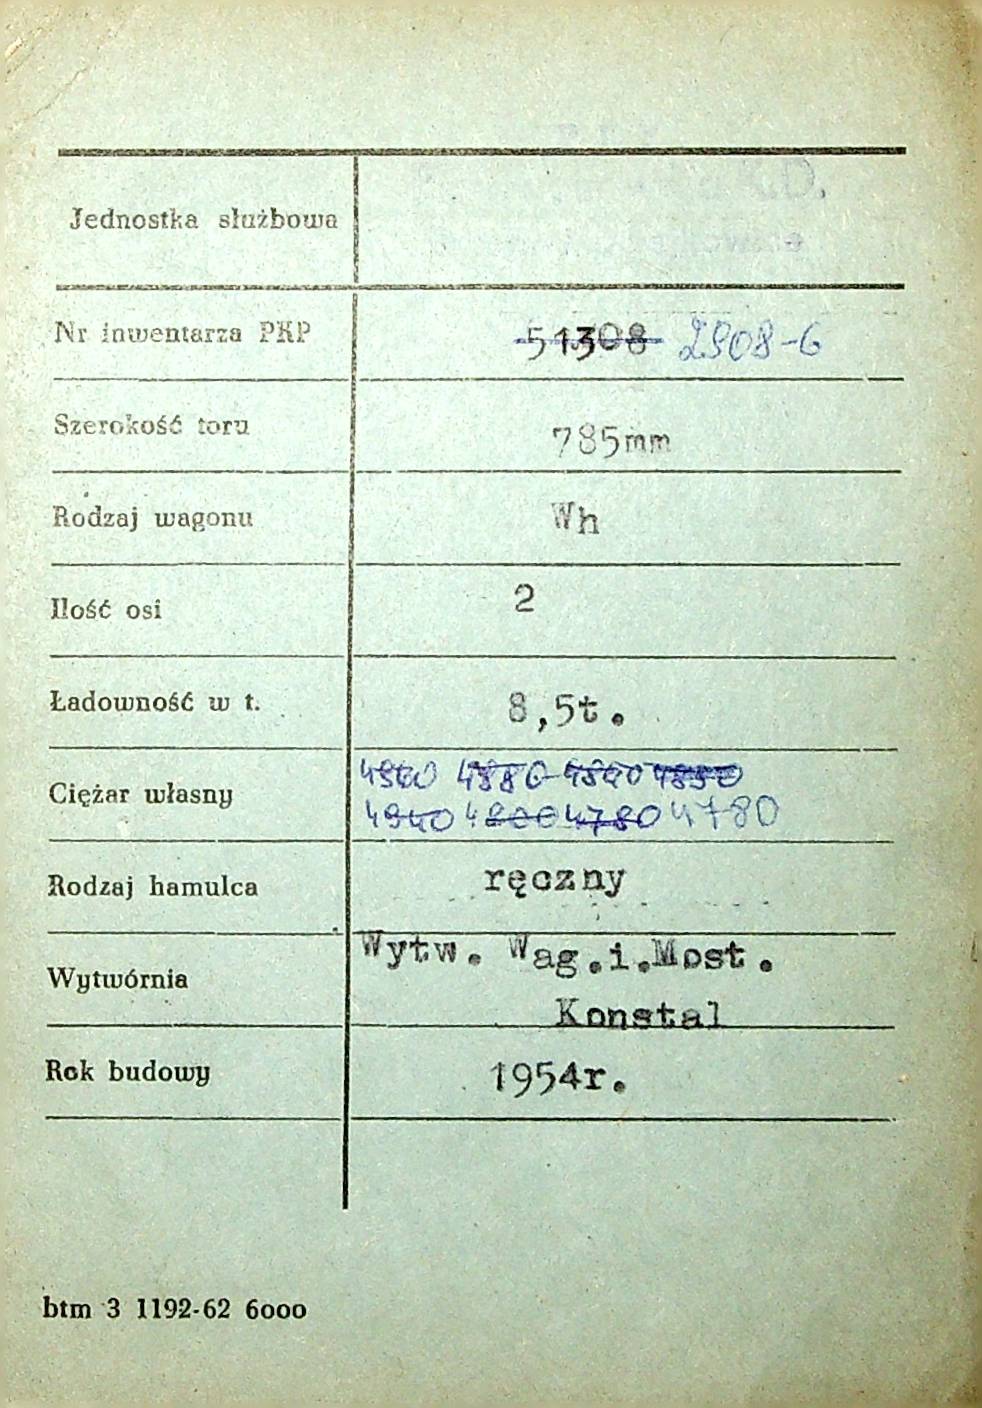 Jednostka służbowa
Nr inwentarza PKP 51308 2908-6
Szerokość toru 785mm
Rodzaj wagonu Wh
Ilość osi 2
Ładowność w t. 8,5t.
Ciężar własny 4880
4940 4800 4780 4780
Rodzaj hamulca ręczny
Wytwórnia Wytw. Wag.i.Most.
Konstal
Rok budowy 1954r.
btm 3 1192-62 6000